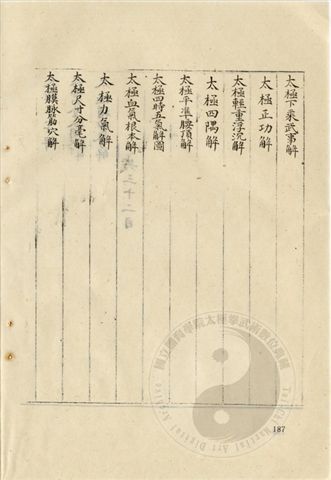 太極下乘武事解
太極正功解
太極輕重浮沉解
太極四隅解
太極平準腰頂解
太極四時五氣解圖
太極血氣根本解
太極力氣解
太極尺寸分毫解
太極膜脉筋穴解
共三十二目
187
國立臺南學院太極拳武術數位典藏
Taiji Martial Art Digital Archive